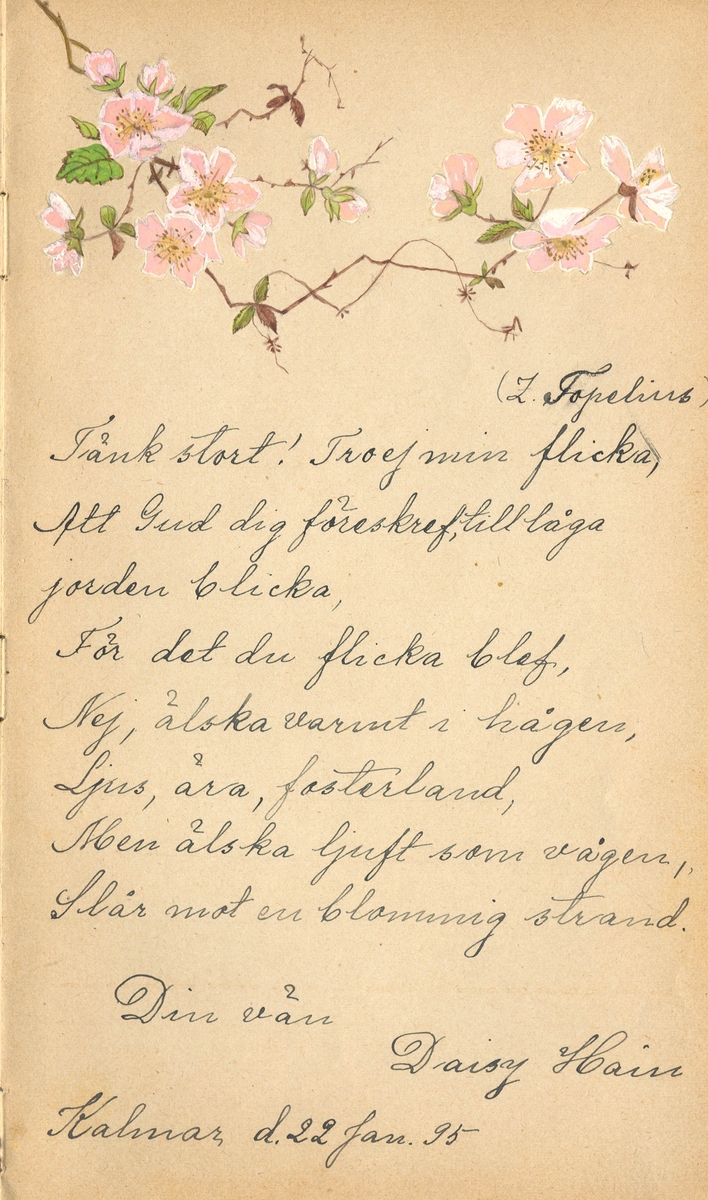 (Z. Topelius)
Tänk stort! Tro ej min flicka,
Att Gud dig föreskref, till låga
jorden blicka,
För det du flicka blef,
Nej, älska varmt i hågen,
Ljus, ära, fosterland,
Men älska ljuft som vågen,
Slår mot en blommig strand.
Din vän
Daisy Hain
Kalmar d. 22 Jan. 95